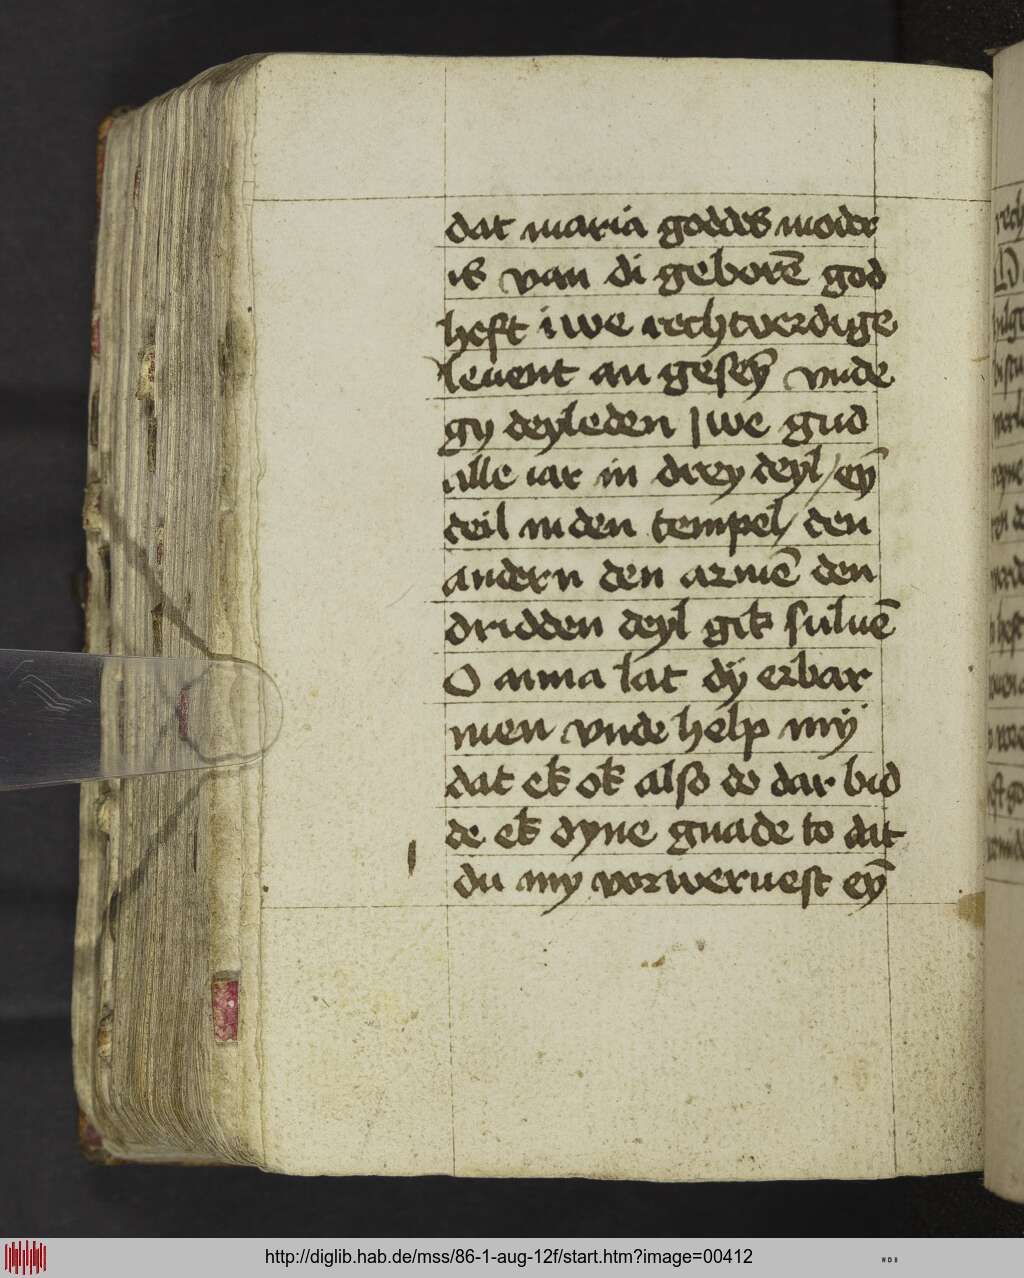 dat maria goddes moder
is van di geborē god
heft iwe rechtverdige
levent an geseȳ vnde
gy deyleden iwe gud
alle iar in drey deyl / eȳ
deil in den tempel / den
andern den armē den
dridden deyl gik suluē
O anna lat dij erbar
men vnde help mij
dat ek ok also do dar bid
de ek dyne gnade to dat
du my vorweruest eȳ
http://diglib.hab.de/mss/86-1-aug-12f/start.htm?image=00412